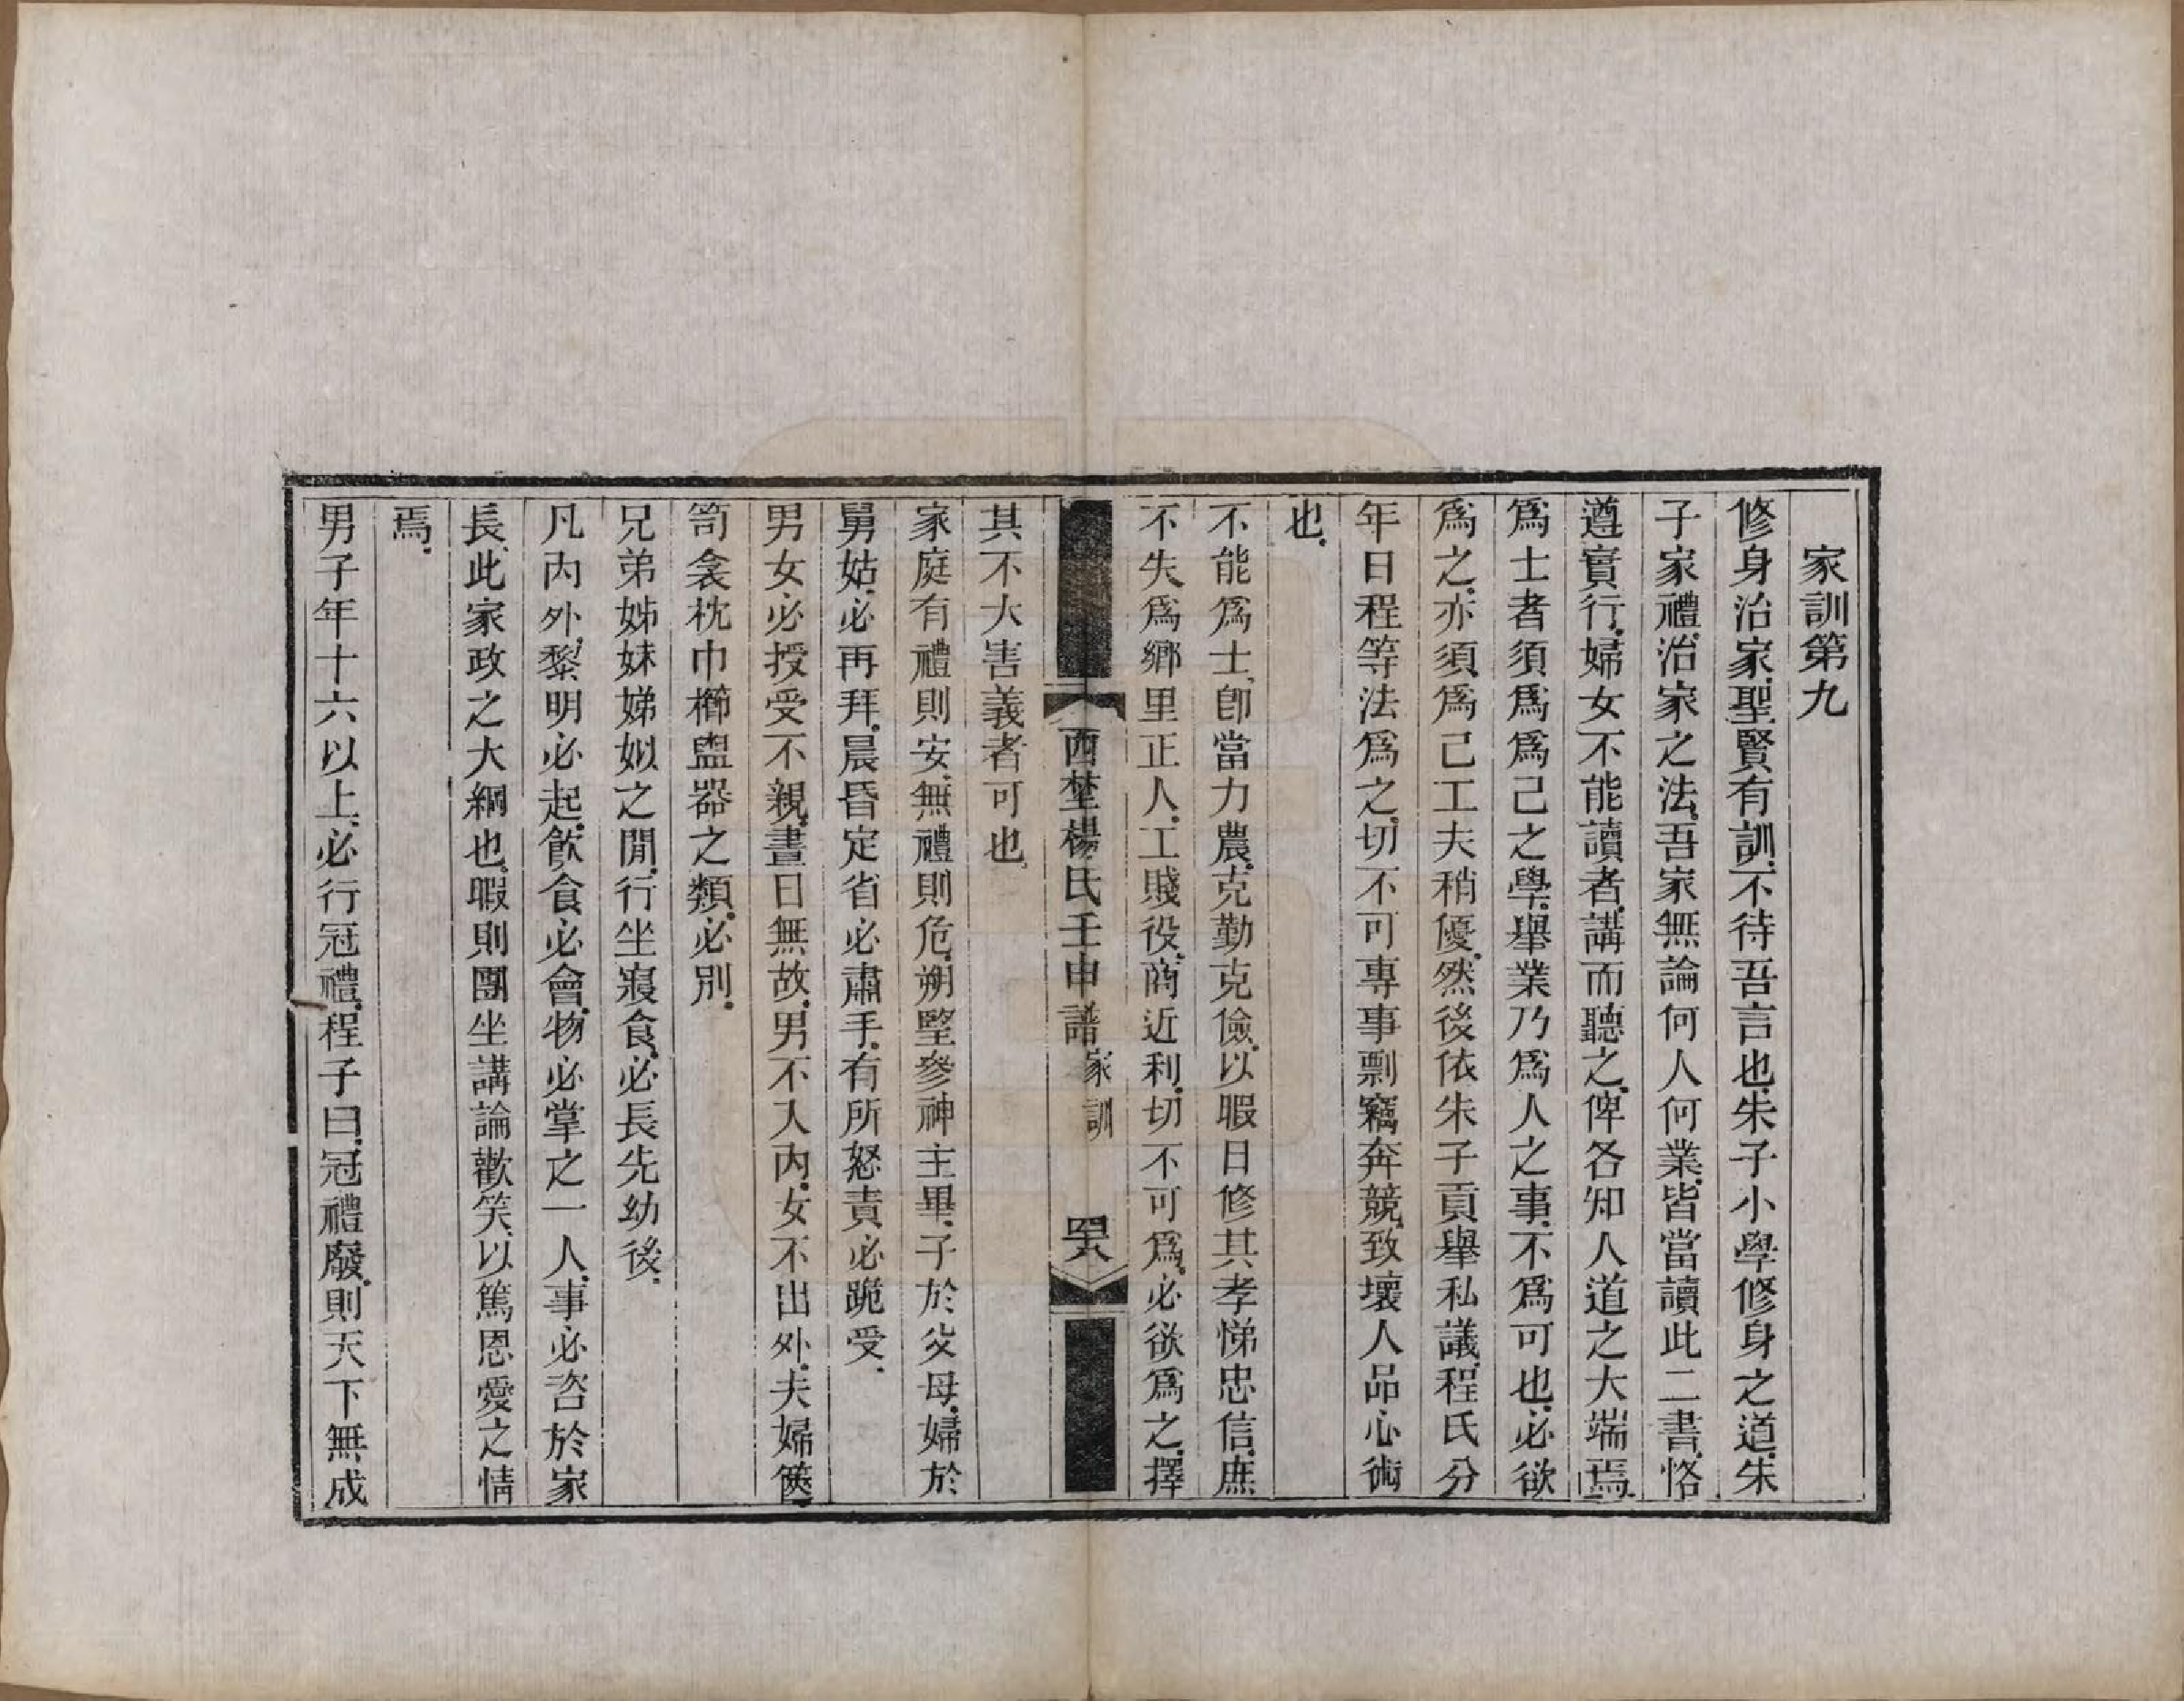 家訓第九
修身治家聖賢有訓不待吾言也朱子小學修身之道朱
子家禮治家之法吾家無論何人何業皆當讀此二書恪
遵實行婦女不能讀者講而聽之俾各知人道之大端焉
爲士者須爲爲己之學舉業乃爲人之事不爲可也必欲
爲之亦須爲己工夫稍優然後依朱子貢舉私議程氏分
年日程等法爲之切不可專事剽竊奔競致壞人品心術
也
不能爲士卽當力農克勤克儉以暇日修其孝悌忠信庶
不失爲鄉里正人工賤役商近利切不可爲必欲爲之擇
其不大害義者可也
西埜楊氏壬申譜 家訓
家庭有禮則安無禮則危朔朢參神主畢子於父母婦於
舅姑必再拜晨昏定省必肅手有所怒責必跪受
男女必授受不親晝日無故男不入內女不出外夫婦篋
笥衾枕巾櫛盥器之類必別
兄弟姊妹娣姒之閒行坐寢食必長先幼後
凡內外黎明必起飲食必會物必掌之一人事必咨於家
長此家政之大綱也暇則團坐講論歡笑以篤恩愛之情
焉
男子年十六以上必行冠禮程子曰冠禮廢則天下無成